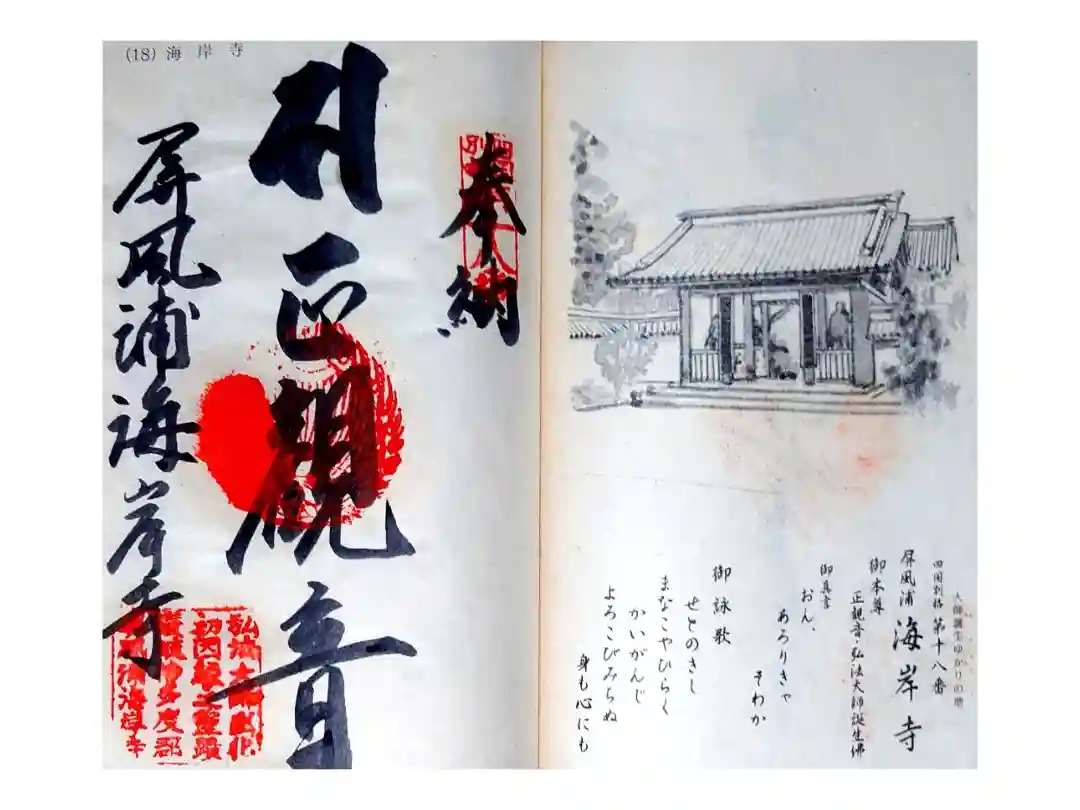 大師誕生ゆかりの地
四国別格 第十八番
屏風浦 海岸寺
御本尊
正観音・弘法大師誕生佛
御真言
おん、
あろりきゃ
そわか
御詠歌
せとのきし
まなこやひらく
かいがんじ
よろこびみちぬ
身も心にも
(18) 海岸寺
奉納
正観音
屏風浦海岸寺